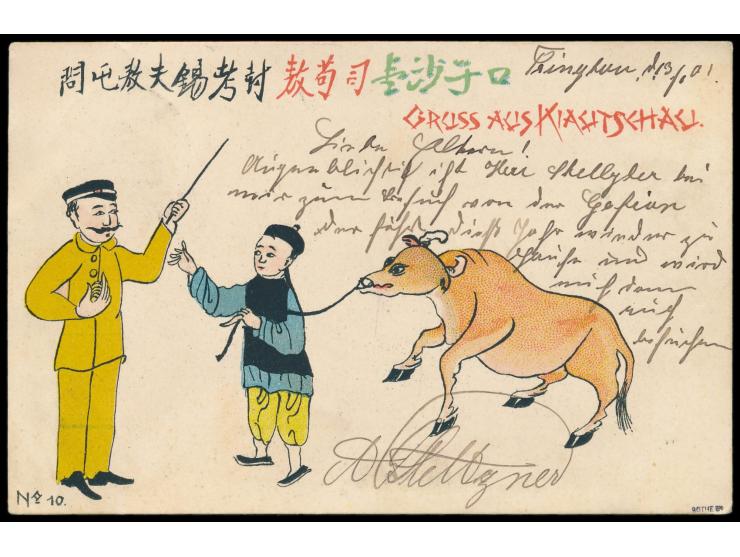 問屯教夫錫考封敖苟司 臺沙子口
Tsingtau, d. 13/6.01.
GRUSS AUS KIAUTSCHAU.
Liebe Eltern!
Augenblicklich ist Herr Stellgner bei
mir zum Besuch von der Gefion
der fährt dieses Jahr wieder zu
Hause und wird
mich dann
auch
besuchen
Stellgner
No 10.